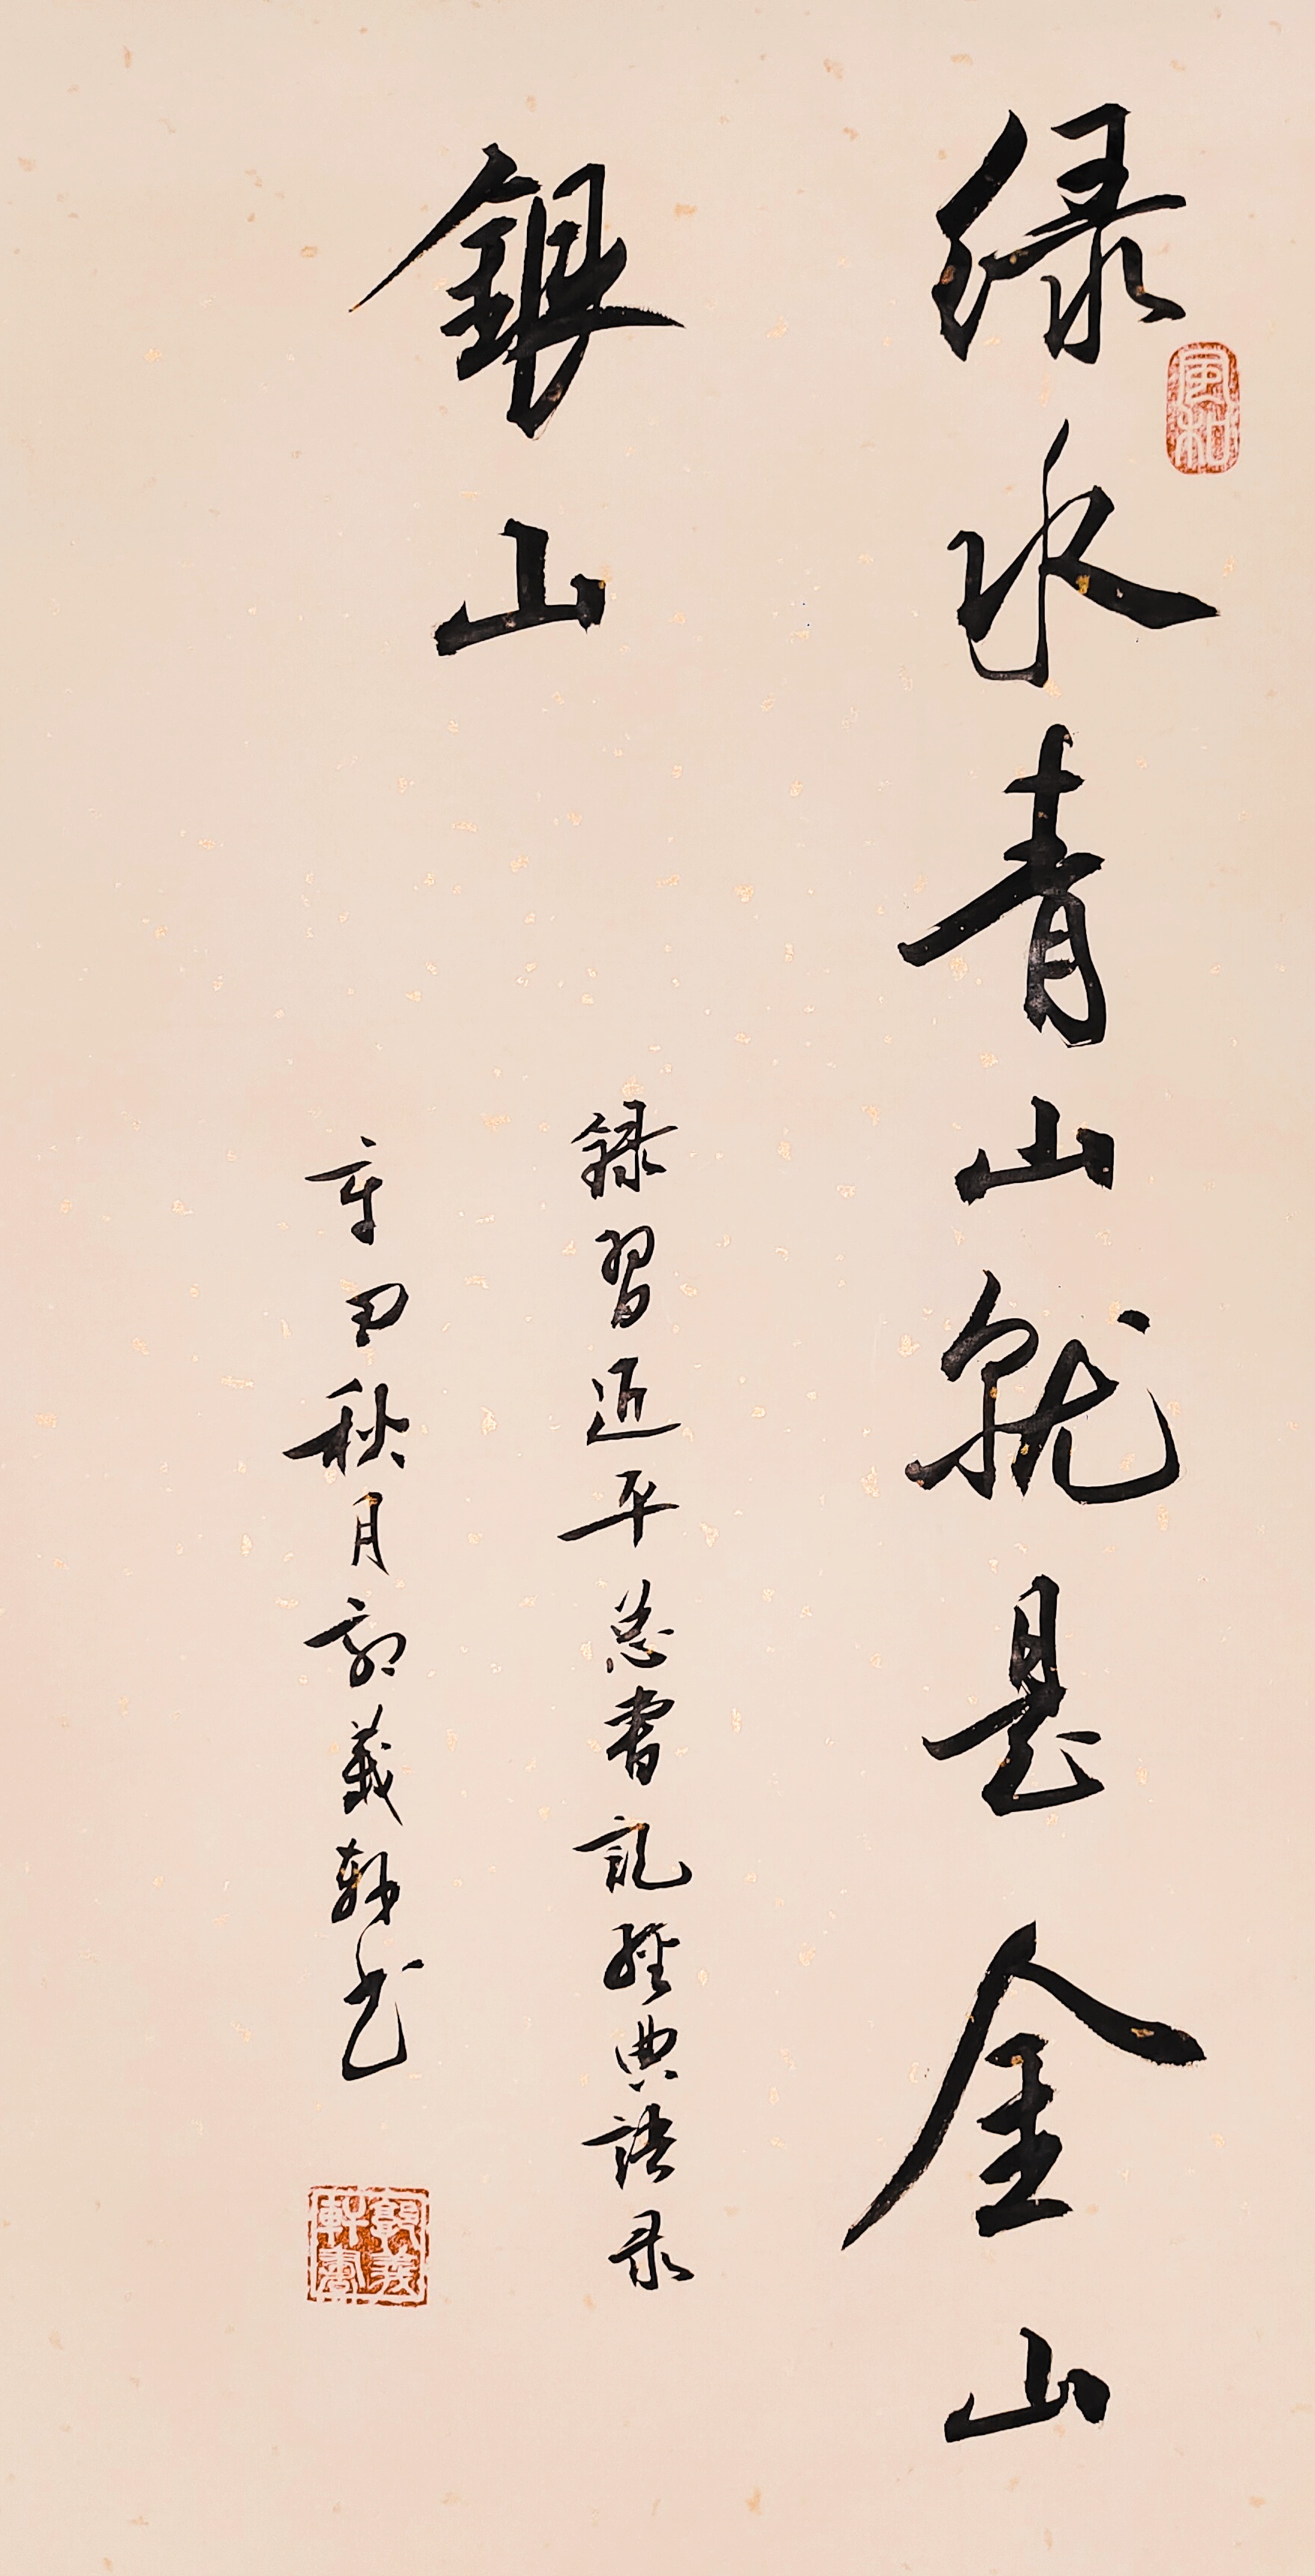 绿水青山就是金山
銀山
録習近平总書記經典語录
辛丑秋月郭義軒书
風和
郭義軒書